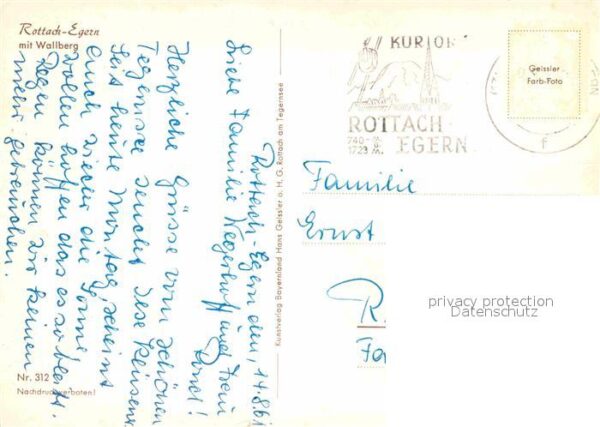 Rottach-Egern
mit Wallberg
Rottach-Egern den, 14.8.61
Liebe Familie Wegerhoff und Frau
Ernst!
Herzliche Grüsse vom schönen
Tegernsee sendet Ilse
Seit heute Montag, scheint
auch wieder die Sonne
wollen hoffen das es so bleibt.
Regen können wir keinen
mehr gebrauchen.
Nr. 312
Nachdruck verboten!
Kunstverlag Bayernland Hans Geissler o. H. G. Rottach am Tegernsee
KURORT
ROTTACH
740-
1723 m.
EGERN
f
Geissler
Farb-Foto
Familie
Ernst
R
Fa
privacy protection
Datenschutz